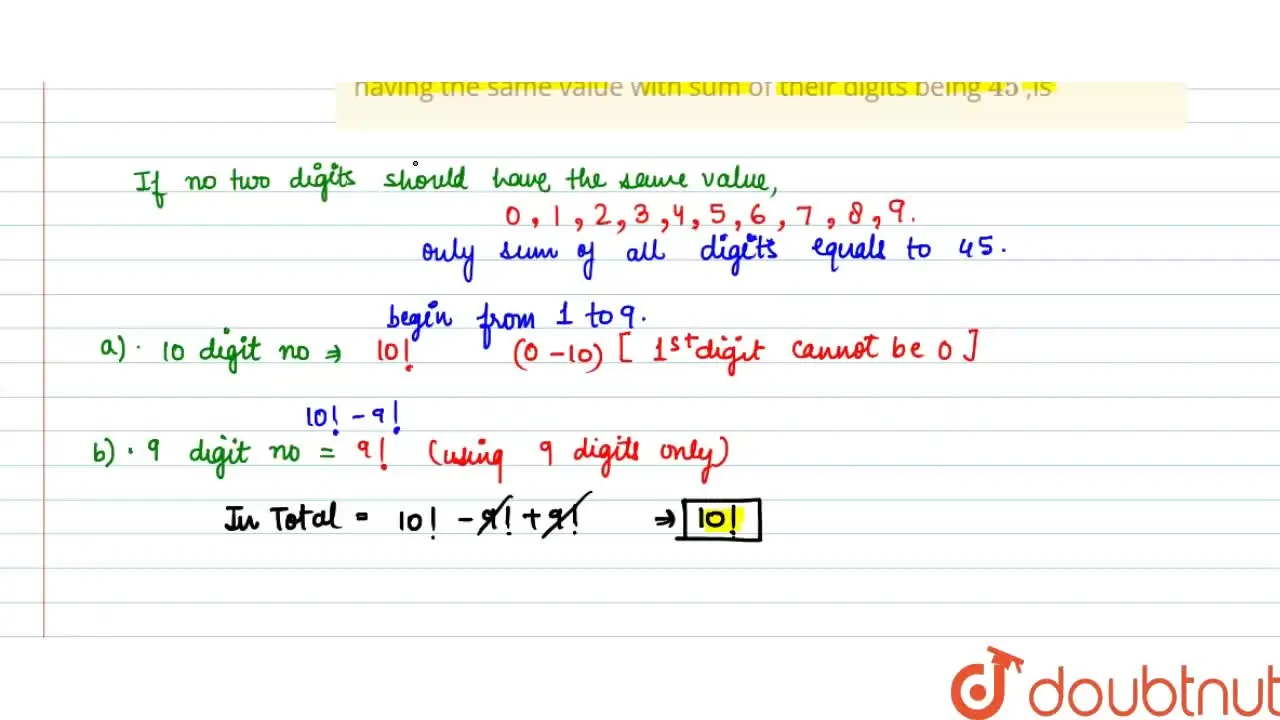 having the same value with sum of their digits being 45 ,is
If no two digits should have the same value,
0 , 1 , 2 , 3 , 4 , 5 , 6 , 7 , 8 , 9 .
only sum of all digits equals to 45 .
begin from 1 to 9 .
a) . 10 digit no ⇒ 10! (0 - 10) [ 1st digit cannot be 0 ]
10! - 9!
b) . 9 digit no = 9! (using 9 digits only)
In Total = 10! - 9! + 9! ⇒ 10!
doubtnut